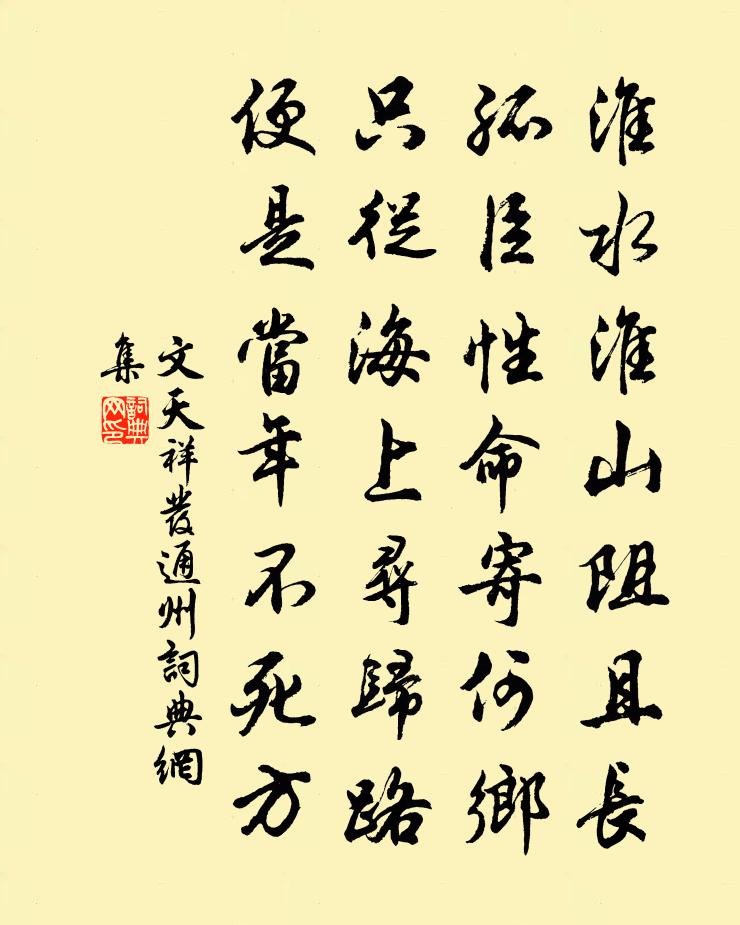 淮水淮山阻且長
孤臣性命寄何鄉
只從海上尋歸路
便是當年不死方
文天祥發通州詞典網
集
詞典
网印